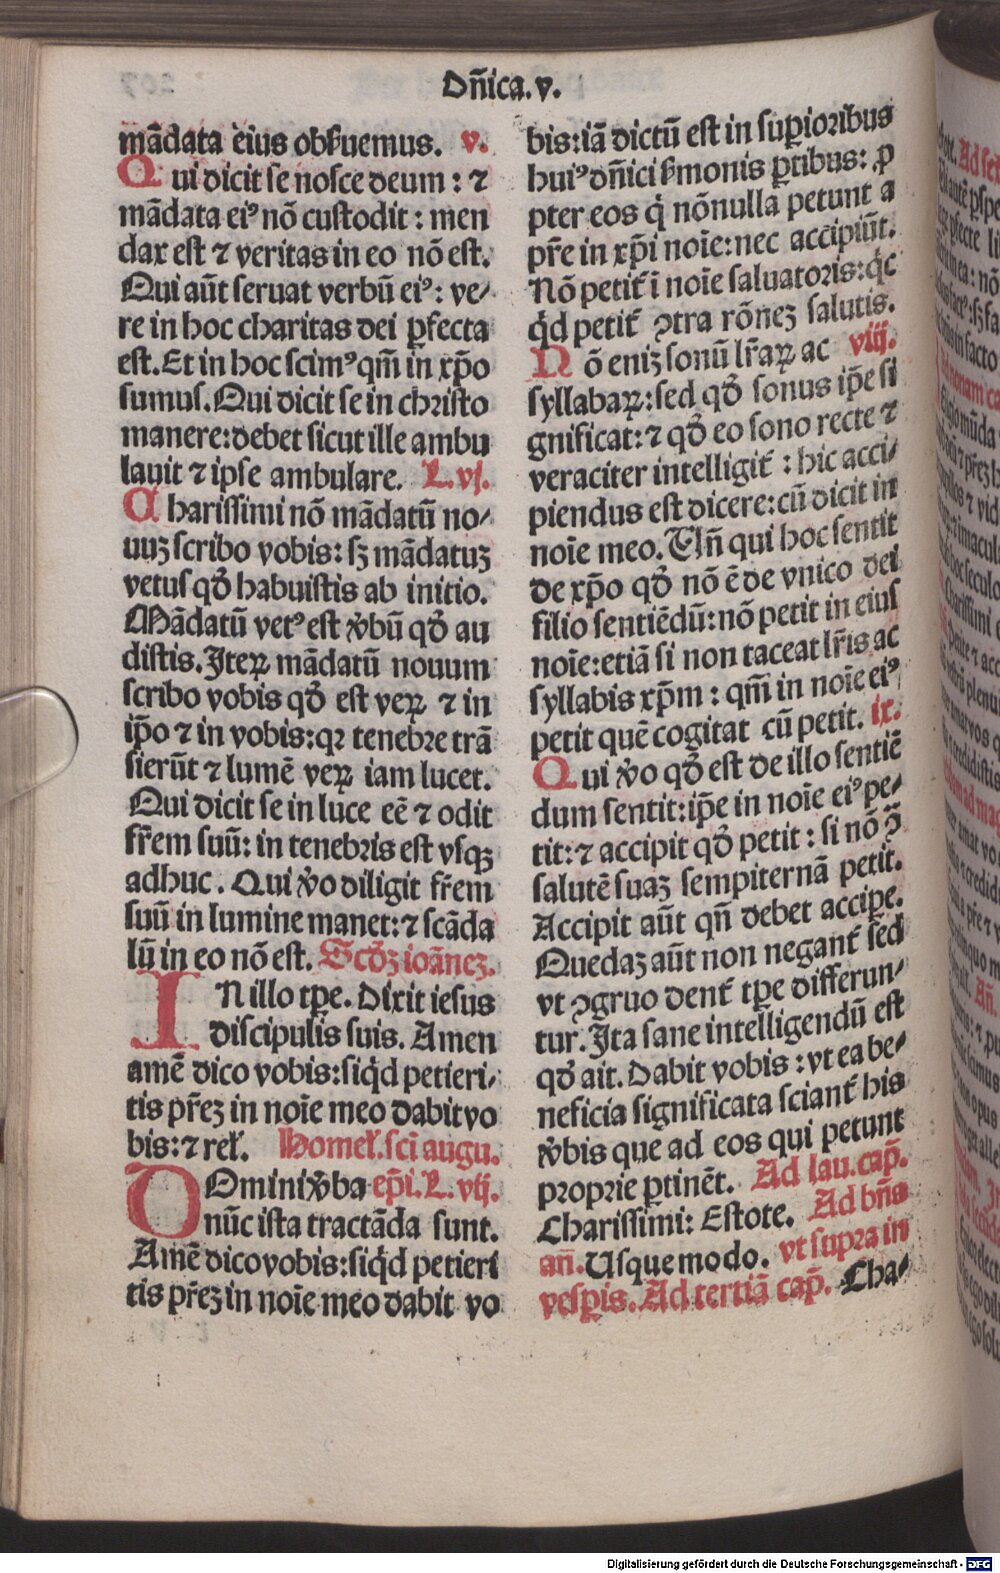 Dñica.v.
mãdata eius obẜuemus. v.
Qui dicit se nosce deum : ⁊
mãdata eiꝰ nõ custodit : men
dax est ⁊ veritas in eo nõ est.
Qui aũt seruat verbũ eiꝰ: ve/
re in hoc charitas dei ꝑfecta
est. Et in hoc scimꝰ qm̃ in xp̃o
sumus. Qui dicit se in christo
manere: debet sicut ille ambu
lauit ⁊ ipse ambulare. L.vj.
Charissimi nõ mãdatũ no/
uuꝫ scribo vobis: sꝫ mãdatuꝫ
vetus qđ habuistis ab initio.
Mãdatũ vetꝰ est v̾bũ qđ au
distis. Iteꝝ mãdatũ nouum
scribo vobis qđ est veꝝ ⁊ in
ip̃o ⁊ in vobis: qꝛ tenebre trã
sierũt ⁊ lumẽ veꝝ iam lucet.
Qui dicit se in luce eẽ ⁊ odit
fr̃em suũ: in tenebris est vsqꝫ
adhuc. Qui v̾o diligit fr̃em
suũ in lumine manet: ⁊ scãda
lũ in eo nõ est. Scđꝫ ioãneꝫ.
IN illo tꝑe. Dixit iesus
discipulis suis. Amen
amẽ dico vobis: siq̇d petieri/
tis pr̃eꝫ in noĩe meo dabit vo
bis: ⁊ rel̃. Homel̃. sc̃i augu.
DOmini v̾ba ep̃i. L. vij.
nũc ista tractãda sunt.
Amẽ dico vobis: siq̇d petieri
tis pr̃eꝫ in noĩe meo dabit vo
bis: iã dictũ est in suꝑioribus
huiꝰ dñici ẜmonis ꝑtibus: ꝓ
pter eos q̇ nõnulla petunt a
pr̃e in xp̃i noĩe: nec accipiũt.
Nõ petit᷑ ĩ noĩe saluatoris: q̇c
q̇d petit᷑ ꝯtra rõneꝫ salutis.
Nõ eniꝫ sonũ lr̃aꝝ ac viij.
syllabaꝝ: sed qđ sonus ip̃e si
gnificat: ⁊ qđ eo sono recte ⁊
veraciter intelligit᷑ : hic acci/
piendus est dicere: cũ dicit in
noĩe meo. Vñ qui hoc sentit
de xp̃o qđ nõ ẽ de vnico dei
filio sentiẽdũ: nõ petit in eius
noĩe: etiã si non taceat lr̃is ac
syllabis xp̃m : qm̃ in noĩe eiꝰ
petit quẽ cogitat cũ petit. ix.
Qui v̾o qđ est de illo sentiẽ
dum sentit: ip̃e in noĩe eiꝰ pe/
tit: ⁊ accipit qđ petit : si nõ ꝯ̃
salutẽ suaꝫ sempiternã petit.
Accipit aũt qñ debet acciꝑe.
Quedaꝫ aũt non negant᷑ sed
vt ꝯgruo dent᷑ tꝑe differun/
tur. Ita sane intelligendũ est
qđ ait. Dabit vobis : vt ea be/
neficia significata sciant᷑ his
v̾bis que ad eos qui petunt
proprie ꝑtinẽt. Ad lau. cap̃.
Charissimi: Estote. Ad bñs
añ. Usque modo. vt supra in
vesꝑis. Ad tertiã cap̃. Cha/
Digitalisierung gefördert durch die Deutsche Forschungsgemeinschaft - DFG